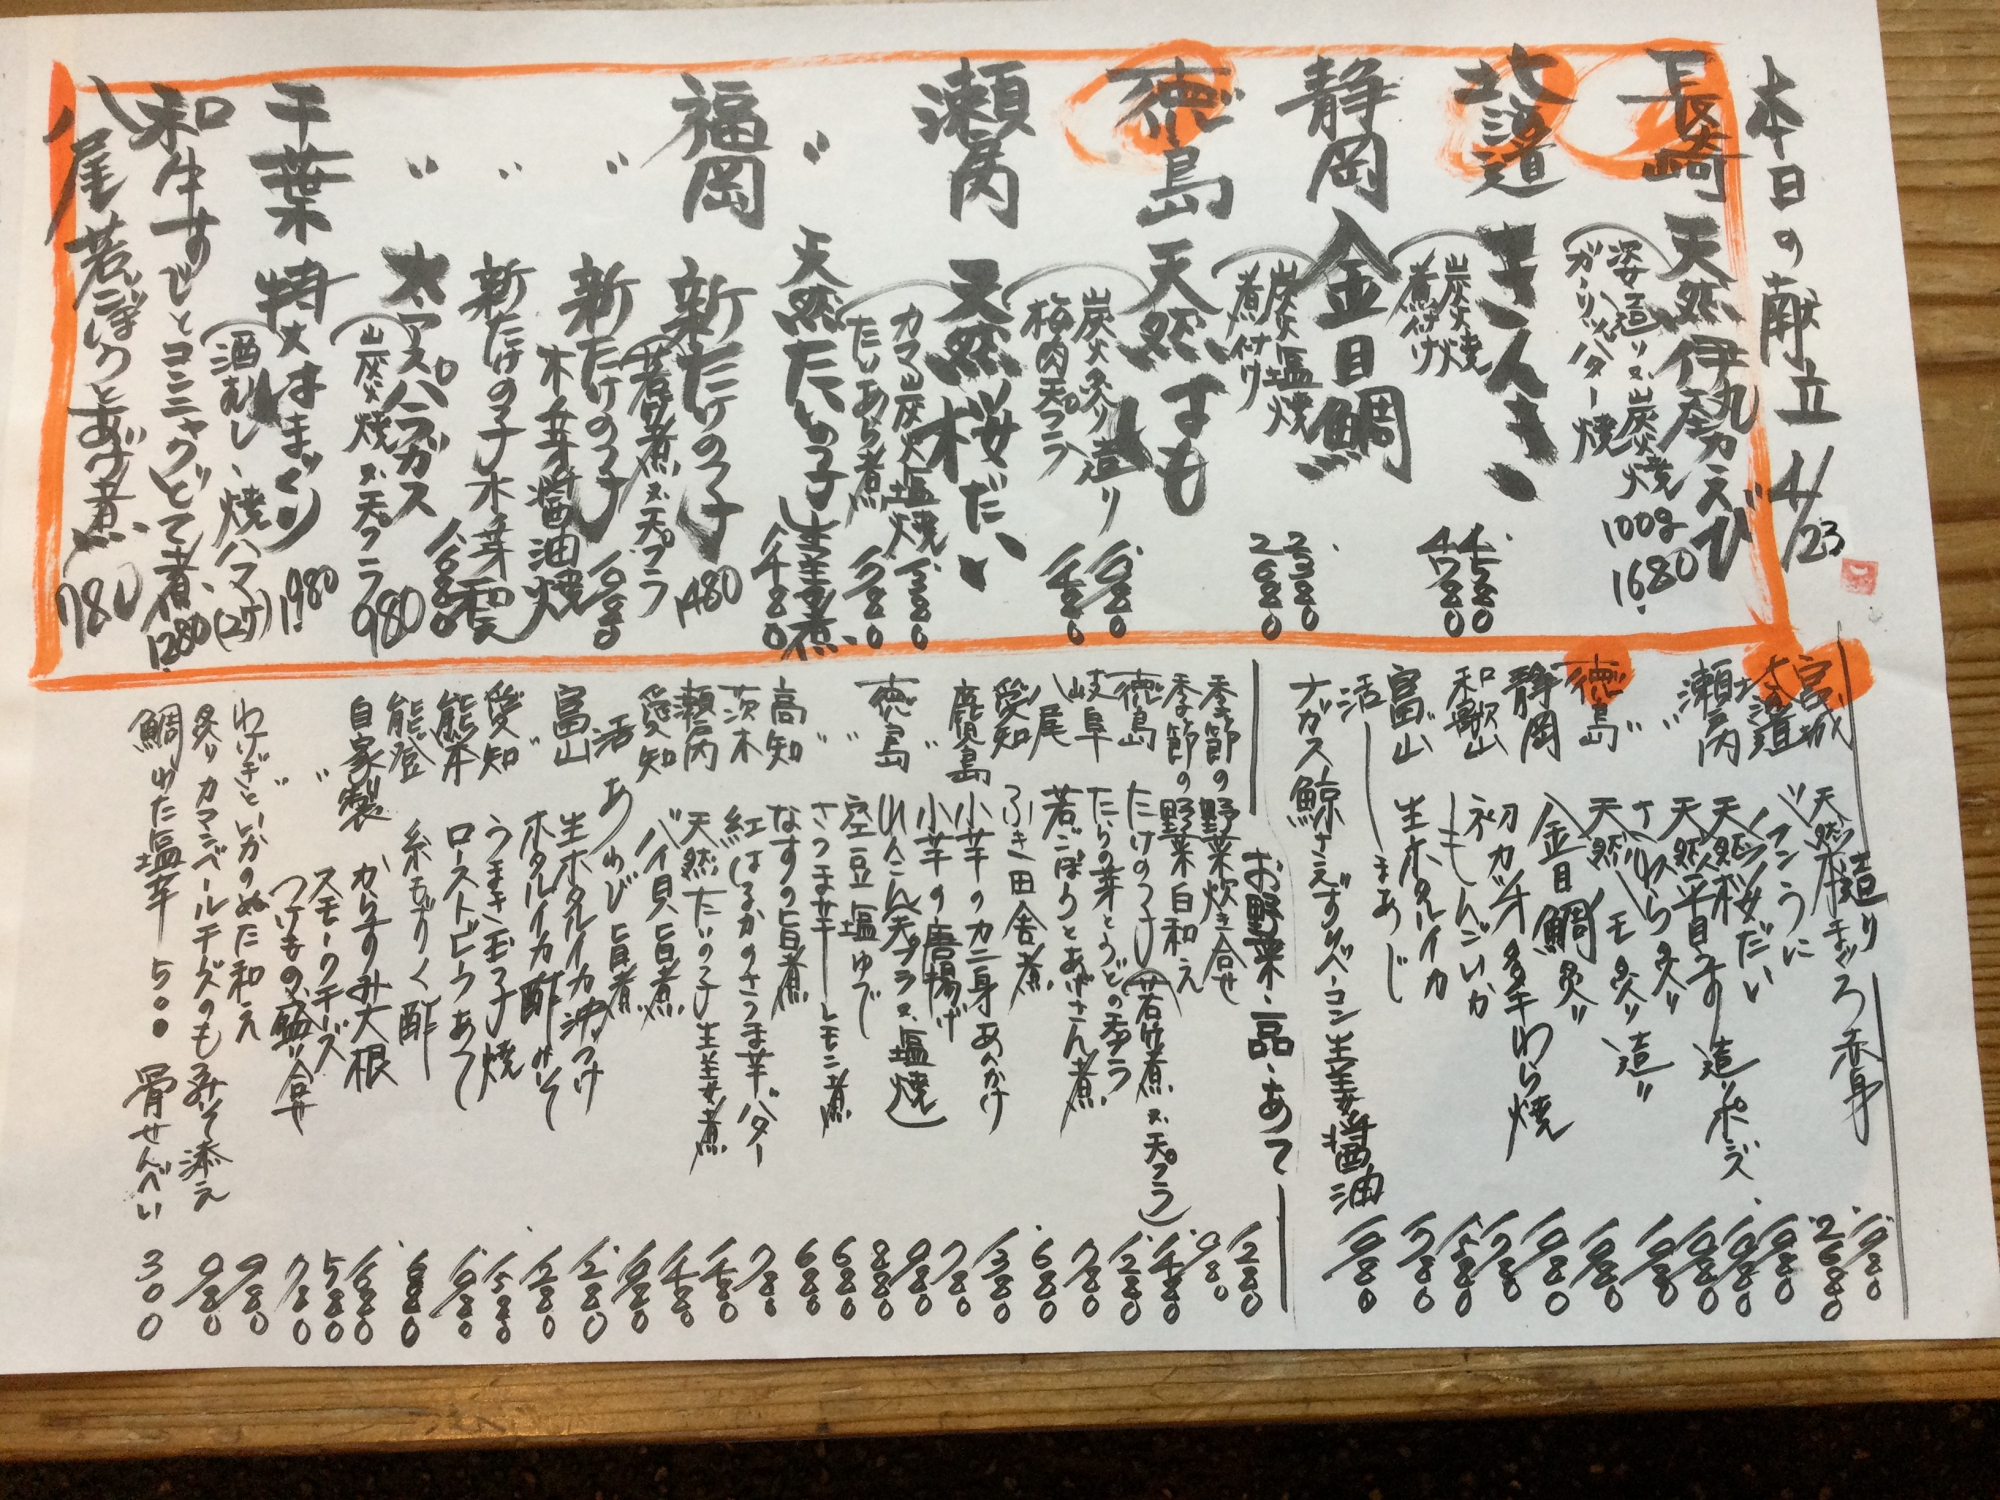 本日の献立 4/23
長崎 天然伊勢えび
姿造り又炭火焼 100g 1680
ガーリックバター焼
北海道 きんき
炭火焼 4580
煮付け 4780
静岡 金目鯛
炭火塩焼 2380
煮付け 2680
徳島 天然はも
炭火炙り造り 1980
梅肉天プラ 1480
瀬戸内 天然桜だい
カマ炭火塩焼
たいあら煮 1780
〃 天然たいの子生姜煮 1480
福岡 新たけの子 1480
若竹煮又天プラ
〃 新たけの子 木の芽醤油焼
〃 新たけの子 木の芽和え 1680
〃 水アスパラガス 980
炭火焼又天プラ
千葉 特大はまぐり 1980
酒むし、焼ハマ(2ケ)
和牛すじとコンニャクどて煮 1280
八尾若ごぼうとあげ煮 780
造り
宮城 天然本まぐろ赤身 1980
北海道 バフンうに 2680
瀬戸内 天然桜だい 1980
〃 天然平目うす造りポン酢 1980
徳島 天然 モ炙り造り
静岡 金目鯛炙り 1980
初カツオタタキわら焼
和歌山 しもんごいか
富山 生ホタルイカ
活 まあじ 1780
ナガス鯨さえずりベーコン生姜醤油 1980
お野菜・一品・あて
季節の野菜炊き合せ 1280
季節の野菜白和え 980
徳島 たけの子(若竹煮又天プラ) 1480
岐阜 たらの芽とうどの天プラ 1280
八尾 若ごぼうとあげさん煮 780
愛知 ふき田舎煮 680
鹿児島 小芋のカニ身あんかけ 1380
〃 小芋の唐揚げ 780
徳島 れんこん天プラ又塩焼 980
〃 空豆塩ゆで 880
〃 さつま芋レモン煮 680
高知 なすの旨煮 680
茨木 紅はるかのさつま芋バター 780
瀬戸内 天然たいの子生姜煮 1480
愛知 バイ貝旨煮 1480
活 あわび旨煮 1980
富山 生ホタルイカ沖づけ 1280
〃 ホタルイカ酢みそ 1280
愛知 うまき玉子焼 1580
熊本 ローストビーフあて 1980
能登 糸もずく酢 680
自家製 からすみ大根 1680
〃 スモークチーズ 580
つけもの盛り合せ 780
わけぎといかのぬた和え 980
炙りカマンベールチーズのもろみそ添え 980
鯛わた塩辛 500 骨せんべい 300